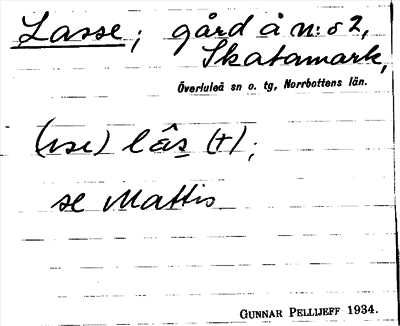 Lasse; gård å n:o 2,
Skatamark,
Överluleå sn o. tg, Norrbottens län.
(use) lâs̲ (+);
se Mattis
GUNNAR PELLIJEFF 1934.